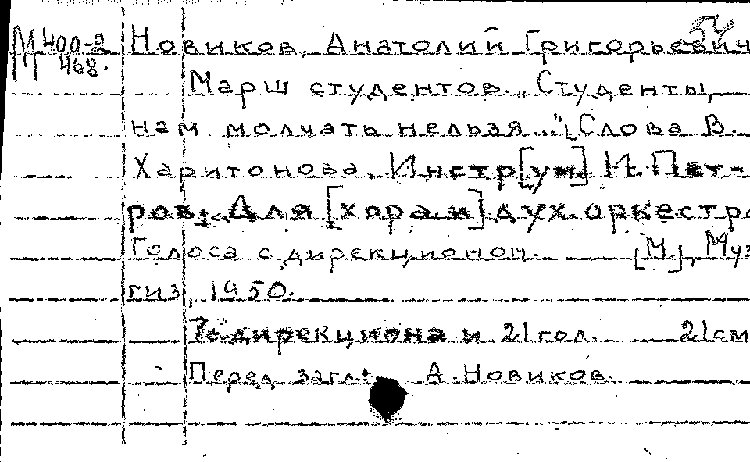 54
М 400-2 Новиков, Анатолий Григорьевич
468. Марш студентов. "Студенты,
нам молчать нельзя..." [Слова В.
Харитонова. Инстр[ум] И. Пет-
ров. Для [хора и] дух. оркестра
Голоса с дирекционом. [М], Муз-
гиз, 1950.
дирекциона и 21 гол. 21 см
Перед загл.: А. Новиков.